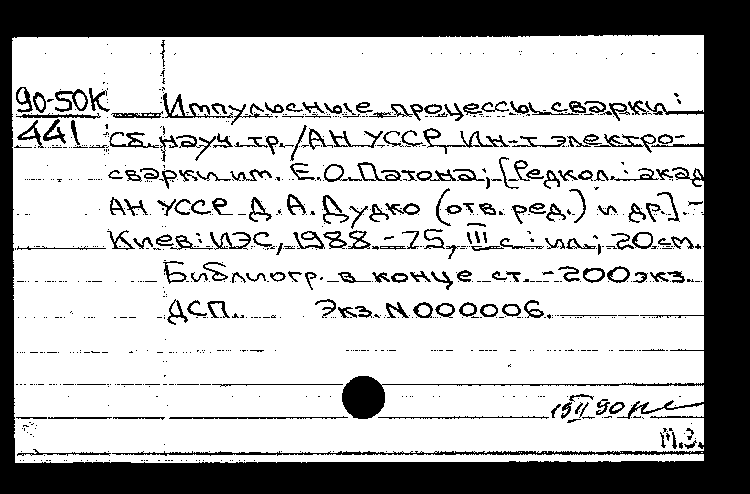 90-50К
441
Импульсные процессы сварки:
Сб. науч. тр. /АН УССР, Ин-т электро-
сварки им. Е.О.Патона; [Редкол.: акад
АН УССР Д.А.Дудко (отв. ред.) и др]. -
Киев: ИЭС, 1988. - 75, III с.: ил.; 20см.
Библиогр. в конце ст. - 200экз.
ДСП. Экз. N000006.
90
М.З.